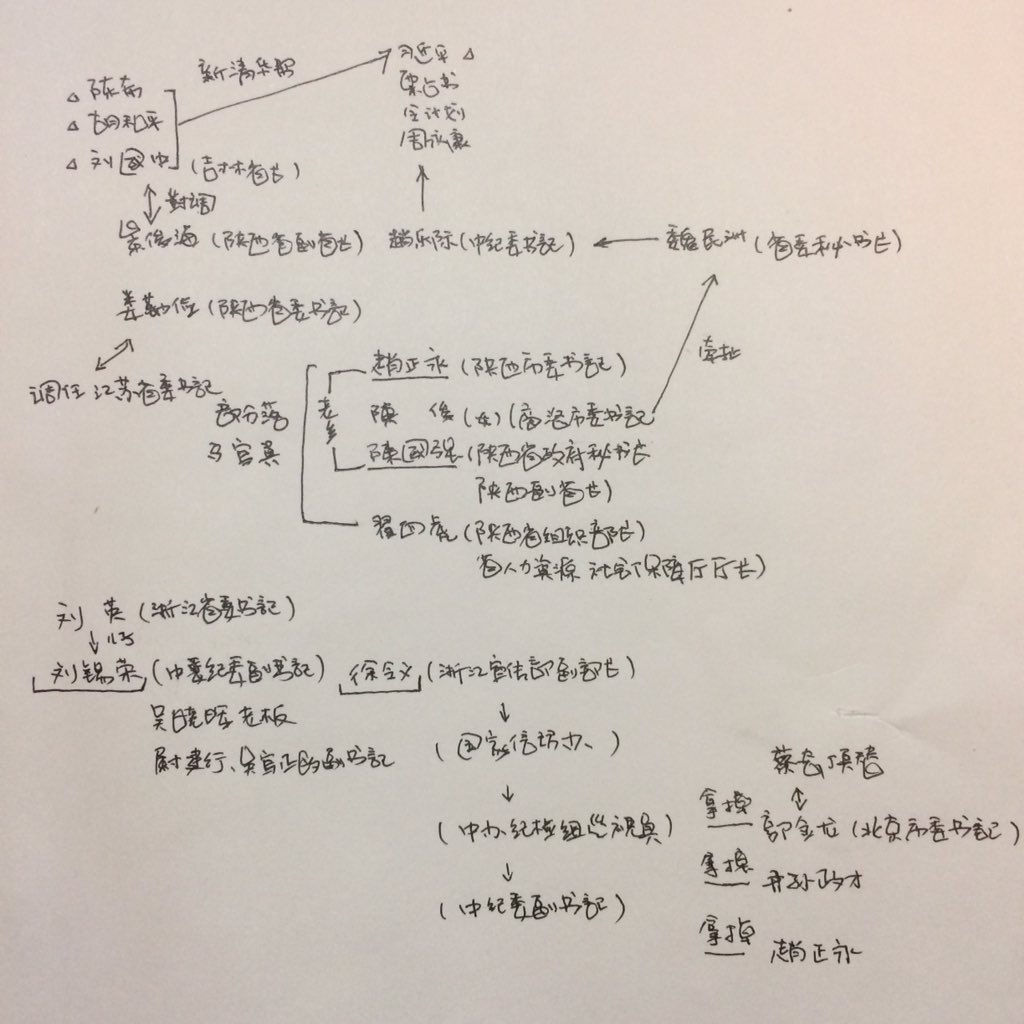 新清华帮
习近平
△ 陈希
栗占书
△ 胡和平
令计划
△ 刘國中 (吉林省长)
周永康
對调
景俊海 (陕西省副省长) 趙乐际 (中纪委书記) 魏民洲 (省委秘书长)
娄勤俭 (陕西省委书記)
牵扯
调任 江苏省委书記
趙正永 (陕西省委书記)
部分落
老乡
陳 俊 (女) (商洛市委书記
马官員
陳國强 (陕西省政府秘书长
陕西副省长)
翟四虎 (陕西省组织部长)
省人力資源 社会保障厅厅长)
刘 英 (浙江省委书記)
刘锡荣 (中央纪委副书記) 徐令义 (浙江宣传部副部长)
吴曉晖老板
(国家信坊办)
尉建行、吳官正的副书記
蔡奇顶替
(中办纪检组巡視員)
拿掉 郭金龙 (北京市委书記)
拿掉 孙政才
(中纪委副书記)
拿掉 趙正永